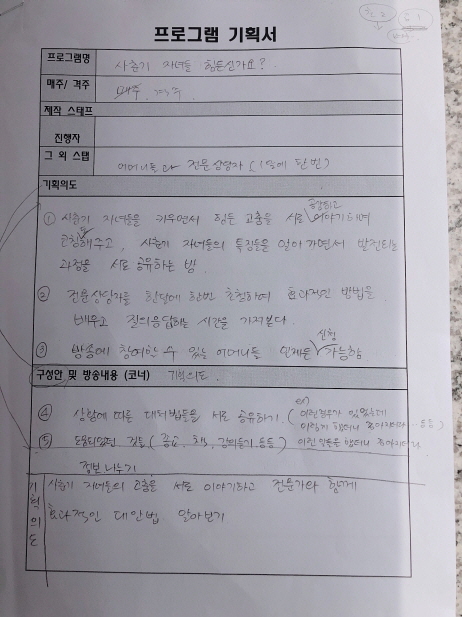 프로그램 기획서
프로그램명 사춘기 자녀들 힘든신가요?
매주/ 격주 매주. 격주
제작 스태프
진행자
그 외 스탭 어머니들과 전문상담자 (1달에 한번)
기획의도
① 사춘기 자녀들을 키우면서 힘든 고충을 서로 공감하고 이야기하며
해주고, 사춘기 자녀들의 특징들을 알아가면서 발전되는
과정을 서로 공유하는 방
② 전문상담자를 한달에 한번 초청하여 효과적인 방법을
배우고 질의응답하는 시간을 가져본다.
③ 방송에 참여할 수 있는 어머니들 언제든 신청 가능함
구성안 및 방송내용 (코너) 기획의도
④ 상황에 따른 대처법들을 서로 공유하기. (ex) 이런경우가 있었는데
이렇게 했더니 좋아지더라… 등등)
⑤ 도움되었던 것들 (종교, 책, 강의듣기 등등) 이런 했더니 좋아지더라
정보 나누기
기획의도
사춘기 자녀들의 고충을 서로 이야기하고 전문가와 함께
효과적인 대안법 알아보기